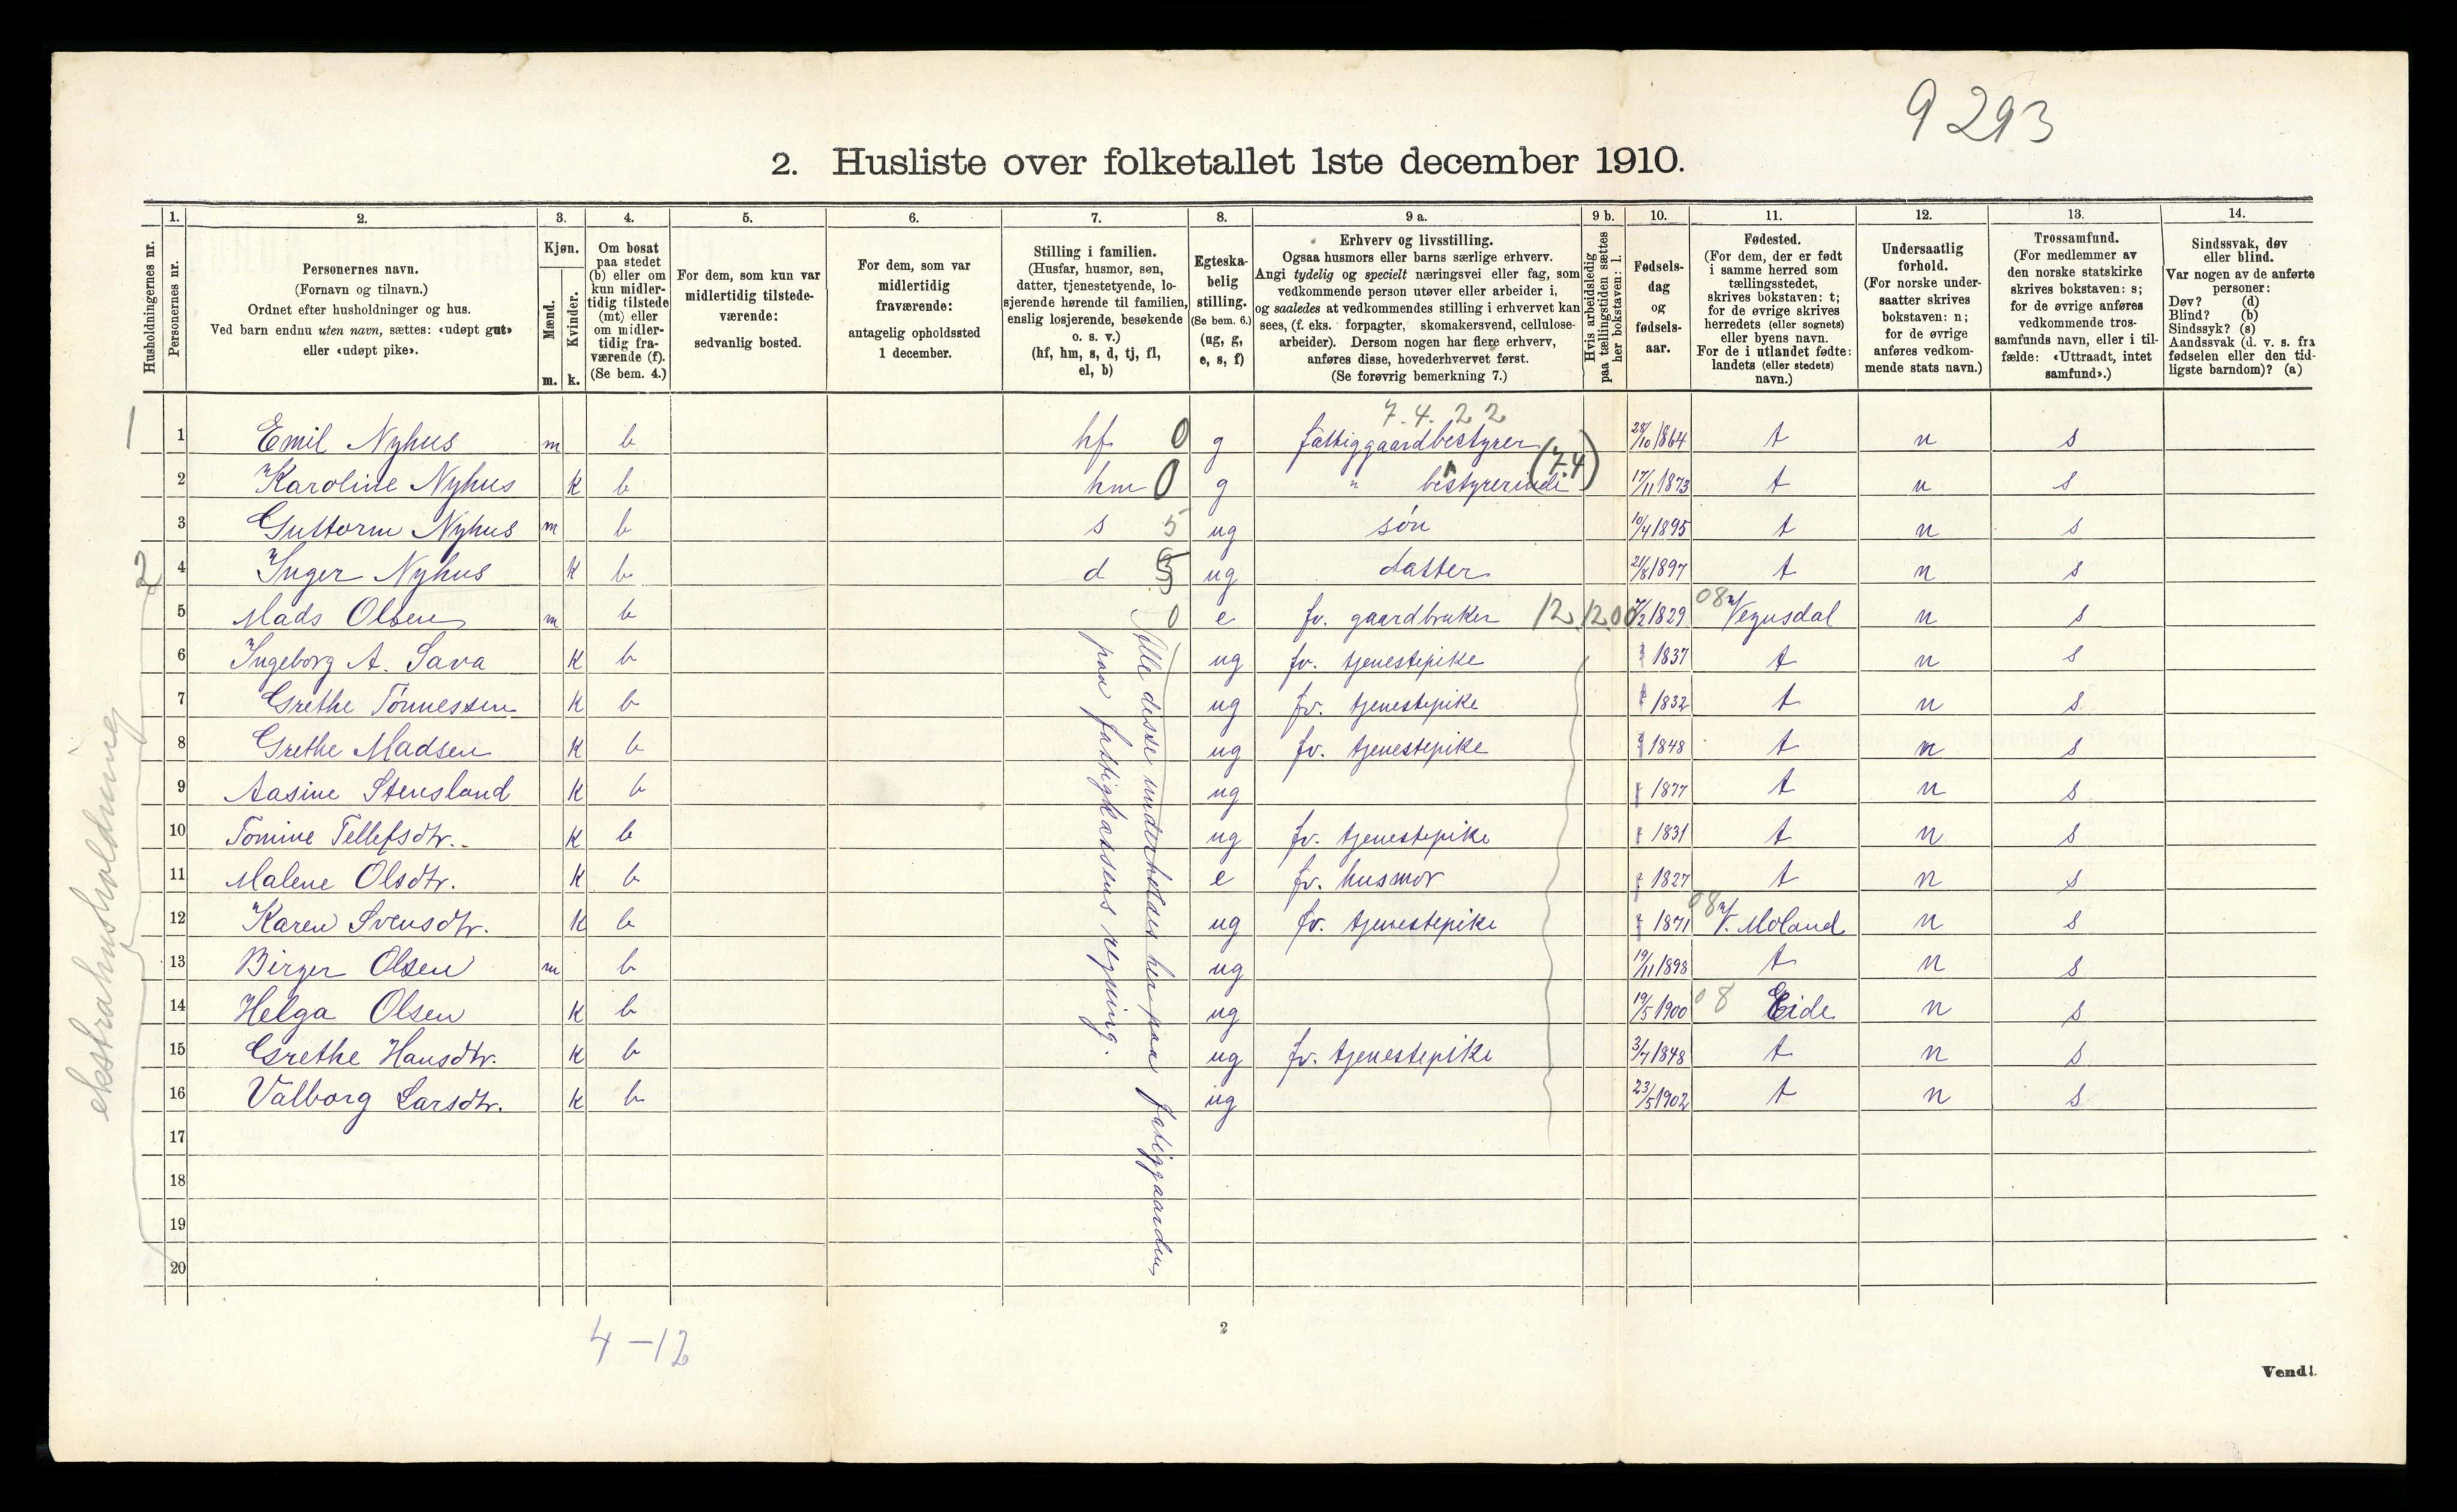 9293
2. Husliste over folketallet 1ste december 1910.
Husholdningernes nr.
1.
Personernes nr.
2.
Personernes navn.
(Fornavn og tilnavn.)
Ordnet efter husholdninger og hus.
Ved barn endnu uten navn, sættes: «udøpt gut»
eller «udøpt pike».
3.
Kjøn.
Mænd.
Kvinder.
m. k.
4.
Om bosat
paa stedet
(b) eller om
kun midler-
tidig tilstede
(mt) eller
om midler-
tidig fra-
værende (f).
(Se bem. 4.)
5.
For dem, som kun var
midlertidig tilstede-
værende:
sedvanlig bosted.
6.
For dem, som var
midlertidig
fraværende:
antagelig opholdssted
1 december.
7.
Stilling i familien.
(Husfar, husmor, søn,
datter, tjenestetyende, lo-
sjerende hørende til familien,
enslig losjerende, besøkende
o. s. v.)
(hf, hm, s, d, tj, fl,
el, b)
8.
Egteska-
belig
stilling.
(Se bem. 6.)
(ug, g,
e, s, f)
9 a.
Erhverv og livsstilling.
Ogsaa husmors eller barns særlige erhverv.
Angi tydelig og specielt næringsvei eller fag, som
vedkommende person utøver eller arbeider i,
og saaledes at vedkommendes stilling i erhvervet kan
sees, (f. eks. forpagter, skomakersvend, cellulose-
arbeider). Dersom nogen har flere erhverv,
anføres disse, hovederhvervet først.
(Se forøvrig bemerkning 7.)
9 b.
Hvis arbeidsledig
paa tællingstiden sættes
her bokstaven: l.
10.
Fødsels-
dag
og
fødsels-
aar.
11.
Fødested.
(For dem, der er født
i samme herred som
tællingsstedet,
skrives bokstaven: t;
for de øvrige skrives
herredets (eller sognets)
eller byens navn.
For de i utlandet fødte:
landets (eller stedets)
navn.)
12.
Undersaatlig
forhold.
(For norske under-
saatter skrives
bokstaven: n;
for de øvrige
anføres vedkom-
mende stats navn.)
13.
Trossamfund.
(For medlemmer av
den norske statskirke
skrives bokstaven: s;
for de øvrige anføres
vedkommende tros-
samfunds navn, eller i til-
fælde: «Uttraadt, intet
samfund».)
14.
Sindssvak, døv
eller blind.
Var nogen av de anførte
personer:
Døv? (d)
Blind? (b)
Sindssyk? (s)
Aandssvak (d. v. s. fra
fødselen eller den tid-
ligste barndom)? (a)
7.4.22
1 Emil Nyhus m b hf 0 g fattiggaardbestyrer 28/10 1864 t n s
2 Karoline Nyhus k b hm 0 g " bestyrerinde (7.4) 17/11 1873 t n s
3 Guttorm Nyhus m b s 5 ug søn 10/4 1895 t n s
2
4 Inger Nyhus k b d 5 ug datter 21/8 1897 t n s
5 Mads Olsen m b 0 e fv. gaardbruker 12.12.00 7/2 1829 08 Vegusdal n s
6 Ingeborg A. Sava k b ug fv. tjenestepike 1837 t n s
7 Grethe Tønnessen k b ug fv. tjenestepike 1832 t n s
8 Grethe Madsen k b ug fv. tjenestepike 1848 t n s
9 Aasine Stensland k b ug 1877 t n s
10 Tomine Tellefsdtr. k b ug fv. tjenestepike 1831 t n s
11 Malene Olsdtr. k b e fv. husmor 1827 t n s
12 Karen Svensdtr. k b ug fv. tjenestepike 1871 08 V. Moland n s
13 Birger Olsen m b ug 19/11 1898 t n s
14 Helga Olsen k b ug 19/5 1900 08 Eide n s
15 Grethe Hansdtr. k b ug fv. tjenestepike 3/7 1848 t n s
16 Valborg Larsdtr. k b ug 23/5 1902 t n s
17
18
19
20
Alle disse underholdes her paa fattiggaarden
paa fattigkassens regning.
ekstrahusholdning
4-12
2
Vend!